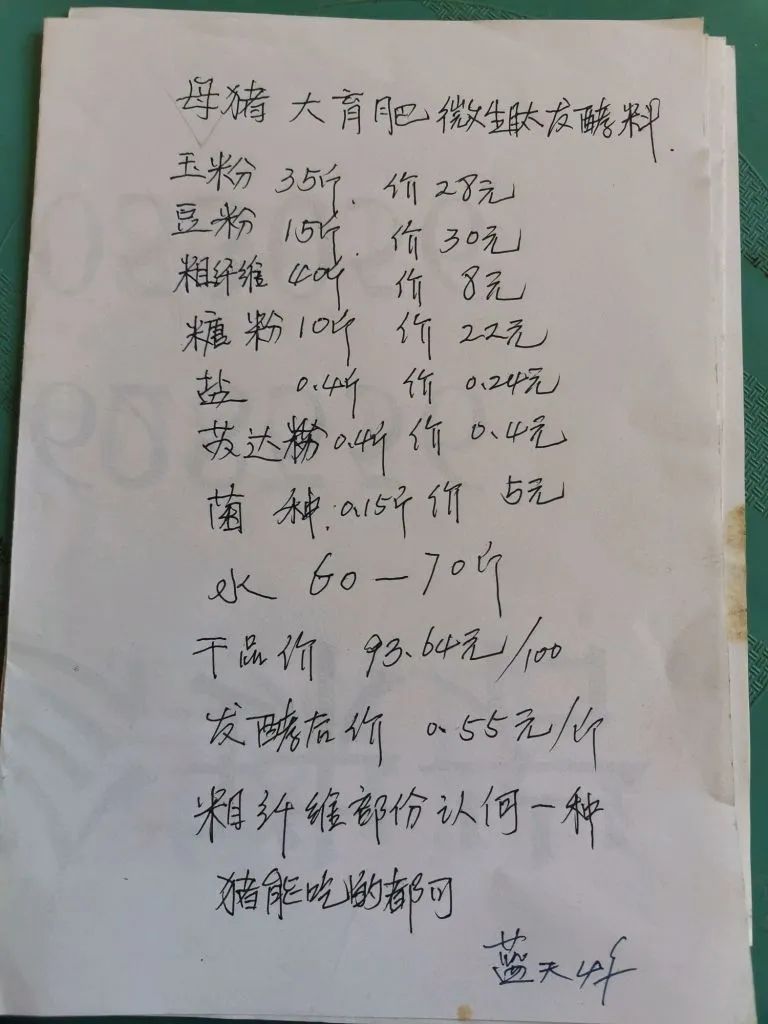 母猪 大育肥微生肽发酵料.
玉粉 35斤. 价 28元
豆粉 15斤. 价 30元
粗纤维 40斤 价 8元
糖粉 10斤 价 22元
盐 0.4斤 价 0.24元
苏达粉 0.4斤 价 0.4元
菌种. 0.15斤 价 5元
水 60—70斤
干品价 93.64元/100
发酵后价 0.55元/斤
粗纤维部份认何一种
猪能吃的都可
蓝天